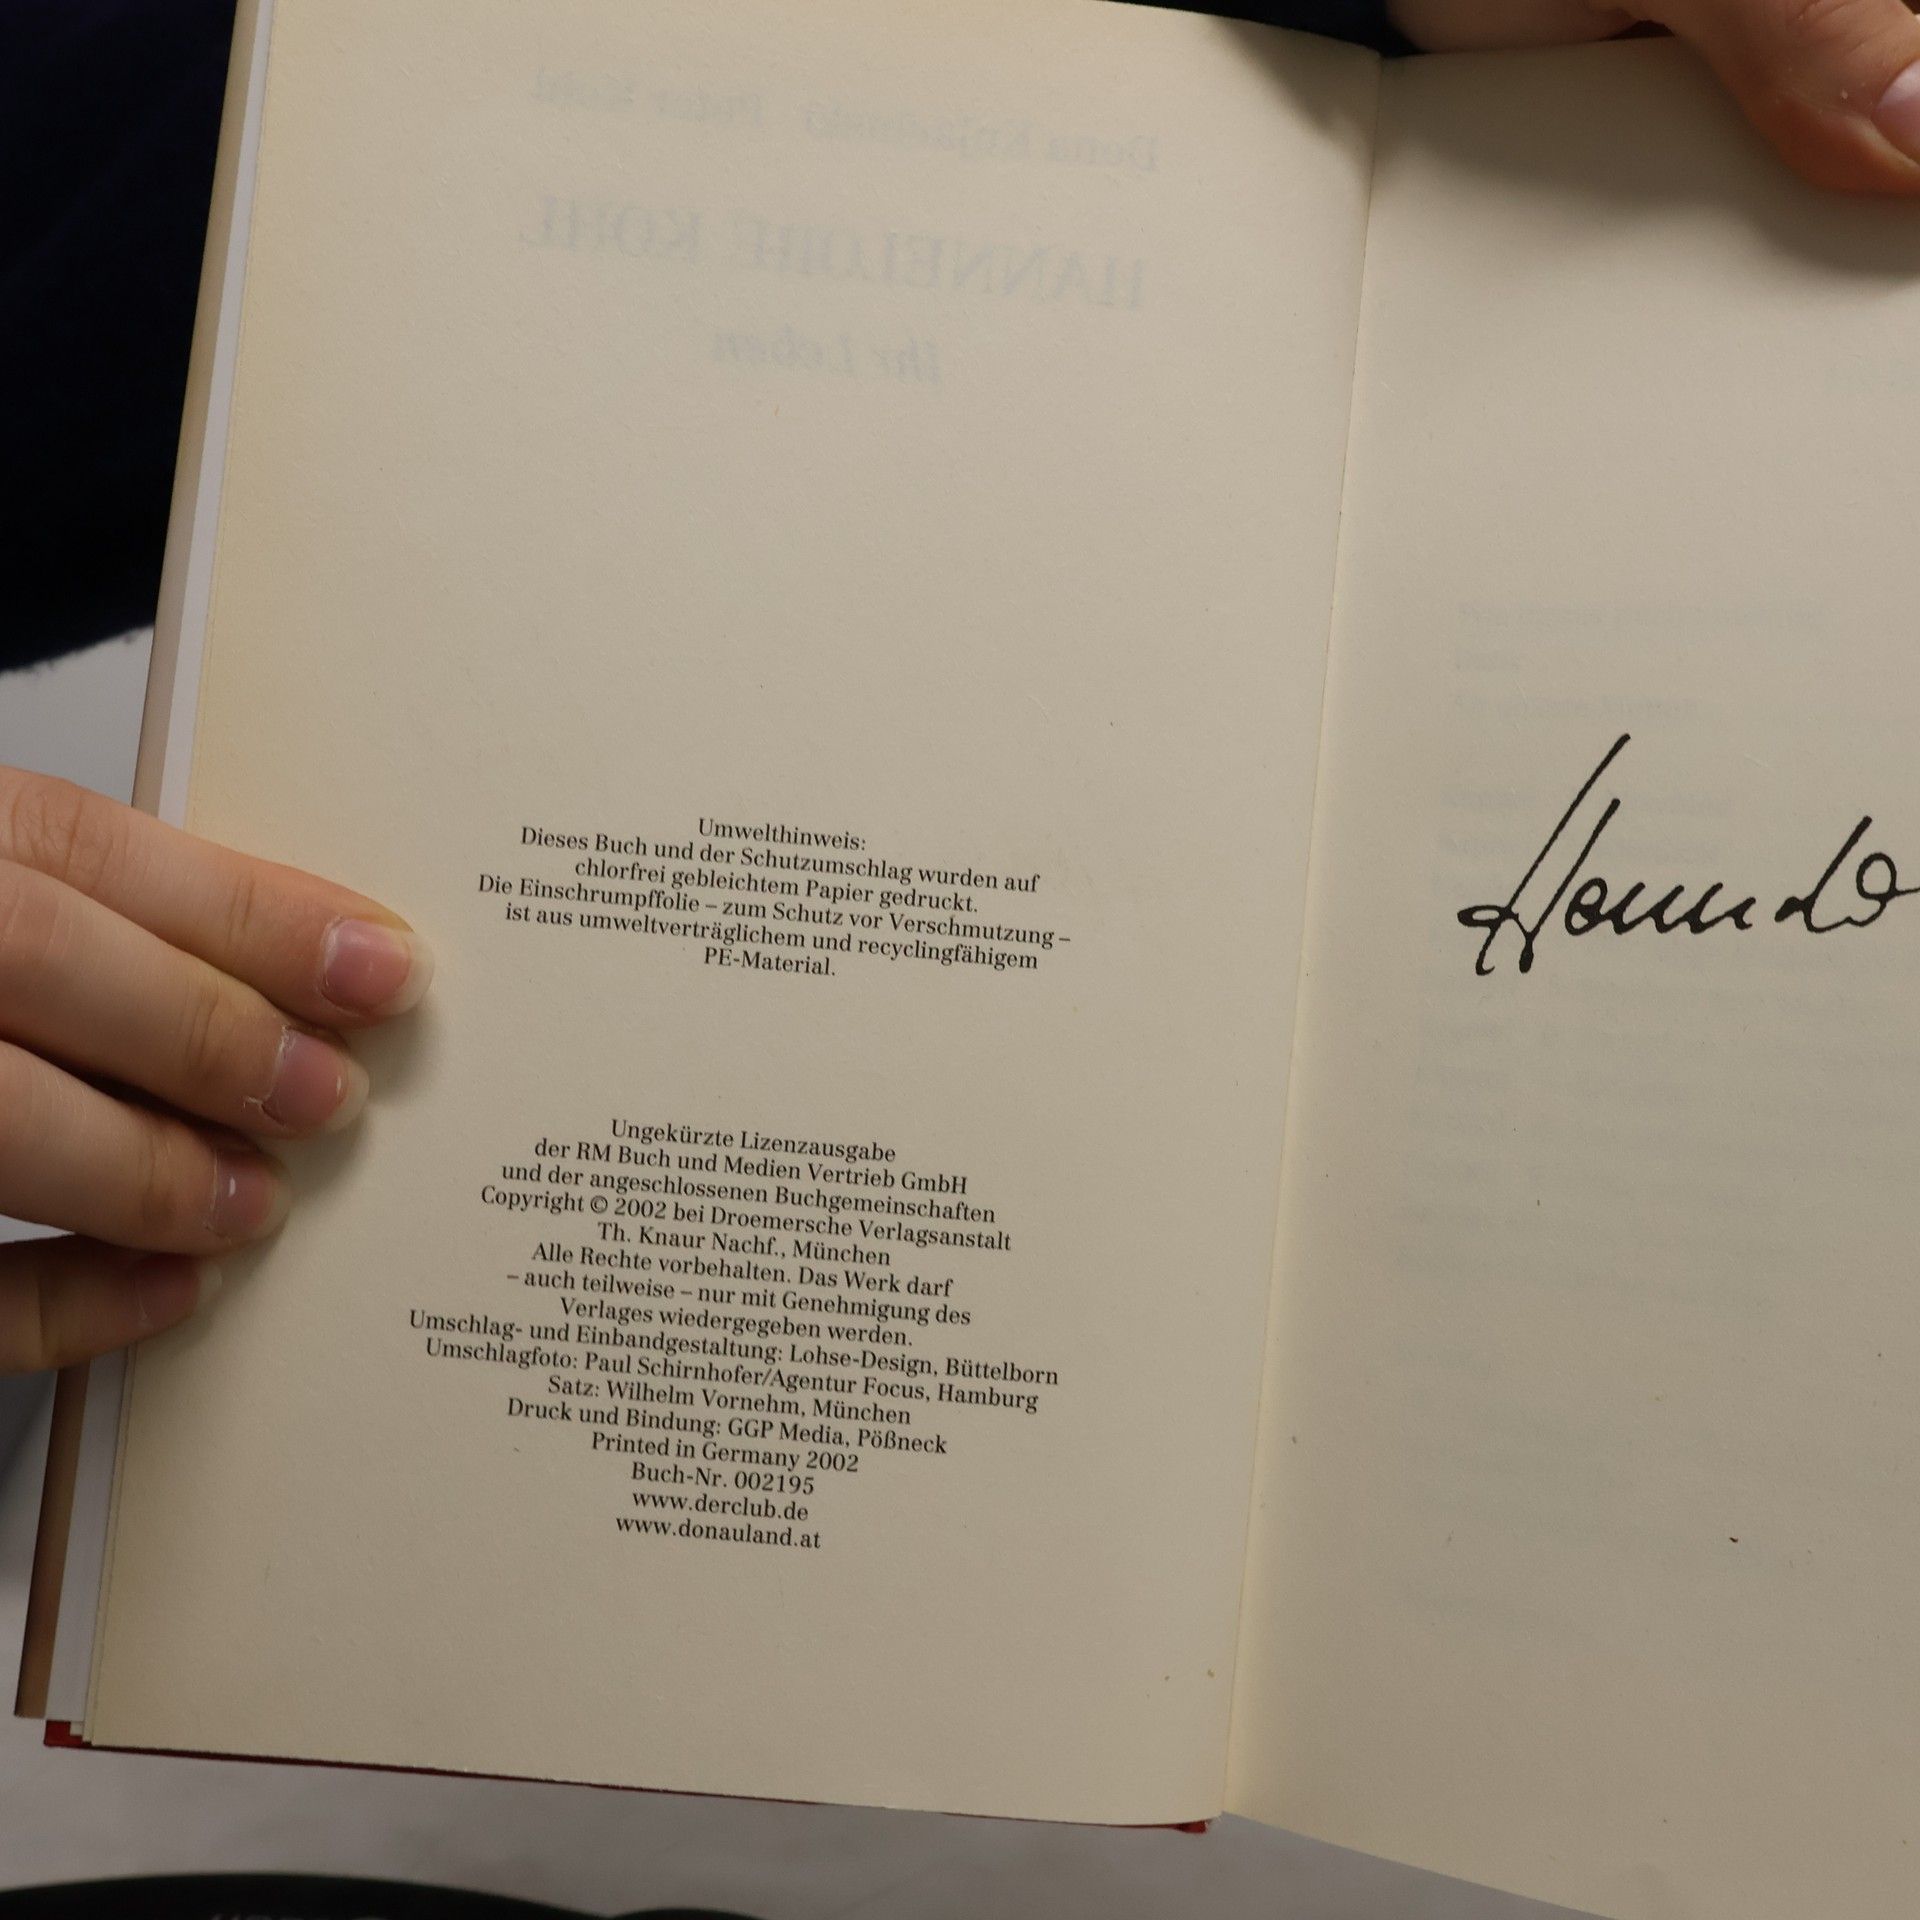 HANNELORE KOHL
Ihr Leben
Umwelthinweis:
Dieses Buch und der Schutzumschlag wurden auf
chlorfrei gebleichtem Papier gedruckt.
Die Einschrumpffolie – zum Schutz vor Verschmutzung –
ist aus umweltverträglichem und recyclingfähigem
PE-Material.
Ungekürzte Lizenzausgabe
der RM Buch und Medien Vertrieb GmbH
und der angeschlossenen Buchgemeinschaften
Copyright © 2002 bei Droemersche Verlagsanstalt
Th. Knaur Nachf., München
Alle Rechte vorbehalten. Das Werk darf
– auch teilweise – nur mit Genehmigung des
Verlages wiedergegeben werden.
Umschlag- und Einbandgestaltung: Lohse-Design, Büttelborn
Umschlagfoto: Paul Schirnhofer/Agentur Focus, Hamburg
Satz: Wilhelm Vornehm, München
Druck und Bindung: GGP Media, Pößneck
Printed in Germany 2002
Buch-Nr. 002195
www.derclub.de
www.donauland.at